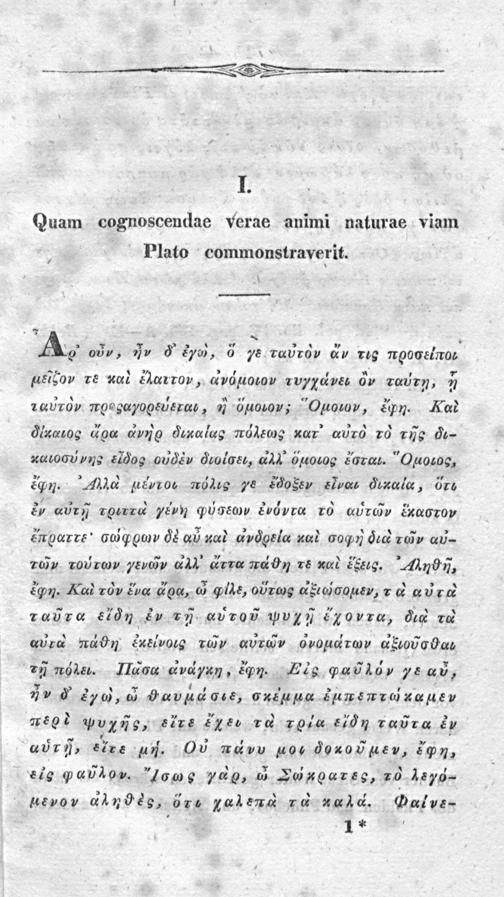 I.
Quam cognoscendae verae animi naturae viam
Plato commonstraverit.
Ἆρ’ οὖν, ἦν δ’ ἐγὼ, ὅ γε ταὐτὸν ἄν τις προσείποι
μεῖζον τε καὶ ἔλαττον, ἀνόμοιον τυγχάνει ὂν ταύτῃ, ᾗ
ταὐτὸν προςαγορεύεται, ἢ ὅμοιον; Ὅμοιον, ἔφη. Καὶ
δίκαιος ἄρα ἀνὴρ δικαίας πόλεως κατ’ αὐτὸ τὸ τῆς δι-
καιοσύνης εἶδος οὐδὲν διοίσει, ἀλλ’ ὅμοιος ἔσται. Ὅμοιος,
ἔφη. Ἀλλὰ μέντοι πόλις γε ἔδοξεν εἶναι δικαία, ὅτι
ἐν αὐτῇ τριττὰ γένη φύσεων ἐνόντα τὸ αὑτῶν ἕκαστον
ἔπραττε· σώφρων δὲ αὖ καὶ ἀνδρεία καὶ σοφὴ διὰ τῶν αὐ-
τῶν τούτων γενῶν ἀλλ’ ἄττα πάθη τε καὶ ἕξεις. Ἀληθῆ,
ἔφη. Καὶ τὸν ἕνα ἄρα, ὦ φίλε, οὕτως ἀξιώσομεν, τὰ αὐτὰ
ταῦτα εἴδη ἐν τῇ αὑτοῦ ψυχῇ ἔχοντα, διὰ τὰ
αὐτὰ πάθη ἐκείνοις τῶν αὐτῶν ὀνομάτων ἀξιοῦσθαι
τῇ πόλει. Πᾶσα ἀνάγκη, ἔφη. Εἰς φαῦλόν γε αὖ,
ἦν δ’ ἐγὼ, ὦ θαυμάσιε, σκέμμα ἐμπεπτώκαμεν
περὶ ψυχῆς, εἴτε ἔχει τὰ τρία εἴδη ταῦτα ἐν
αὑτῇ, εἴτε μή. Οὐ πάνυ μοι δοκοῦμεν, ἔφη,
εἰς φαῦλον. Ἴσως γὰρ, ὦ Σώκρατες, τὸ λεγό-
μενον ἀληθὲς, ὅτι χαλεπὰ τὰ καλά. Φαίνε-
1*